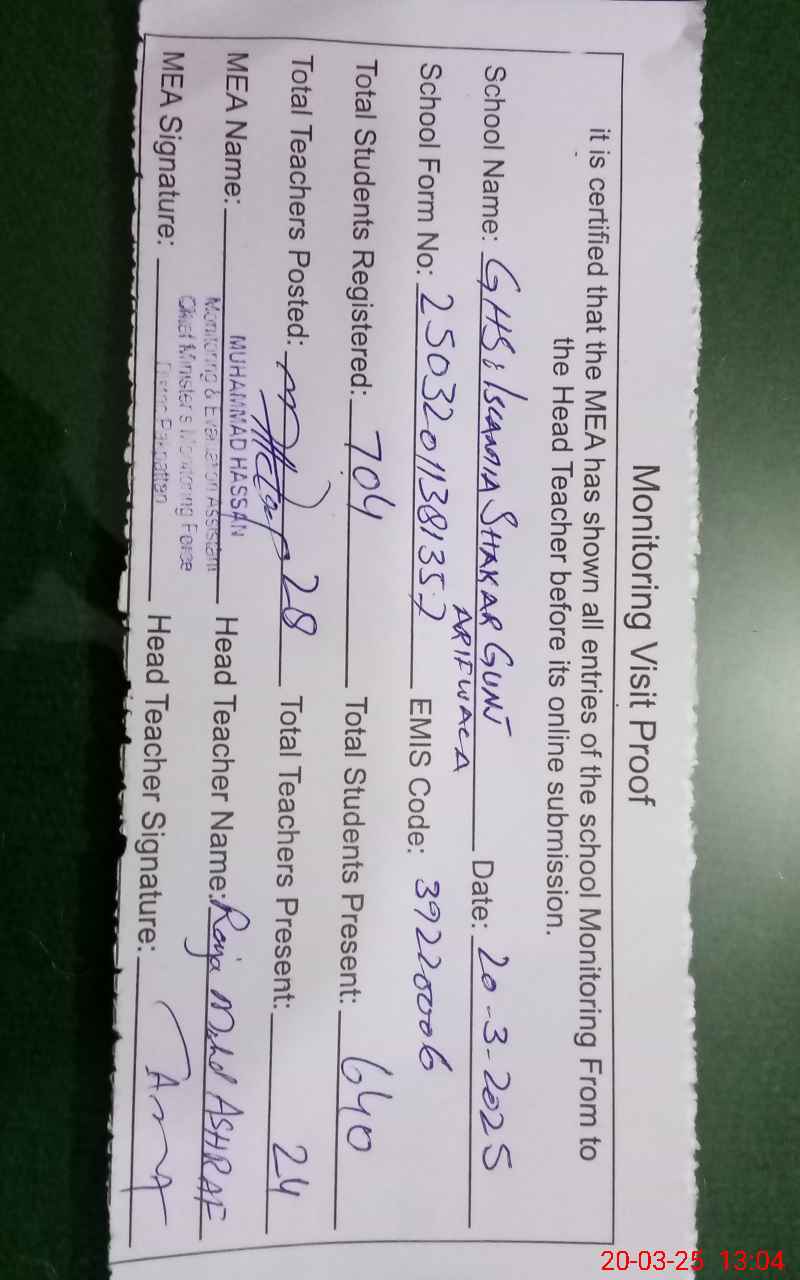 Monitoring Visit Proof
it is certified that the MEA has shown all entries of the school Monitoring From to
the Head Teacher before its online submission.
School Name: GHS: ISLAMIA SHAKAR GUNJ Date: 20-3-2025
ARIFWALA
School Form No: 25032011381357 EMIS Code: 39220006
Total Students Registered: 704 Total Students Present: 640
Total Teachers Posted: 28 Total Teachers Present: 24
MEA Name: MUHAMMAD HASSAN Head Teacher Name: Raja Mohd ASHRAF
Monitoring & Evaluation Assistant
Chief Minister's Monitoring Force
Pakpattan
MEA Signature: Head Teacher Signature:
20-03-25 13:04